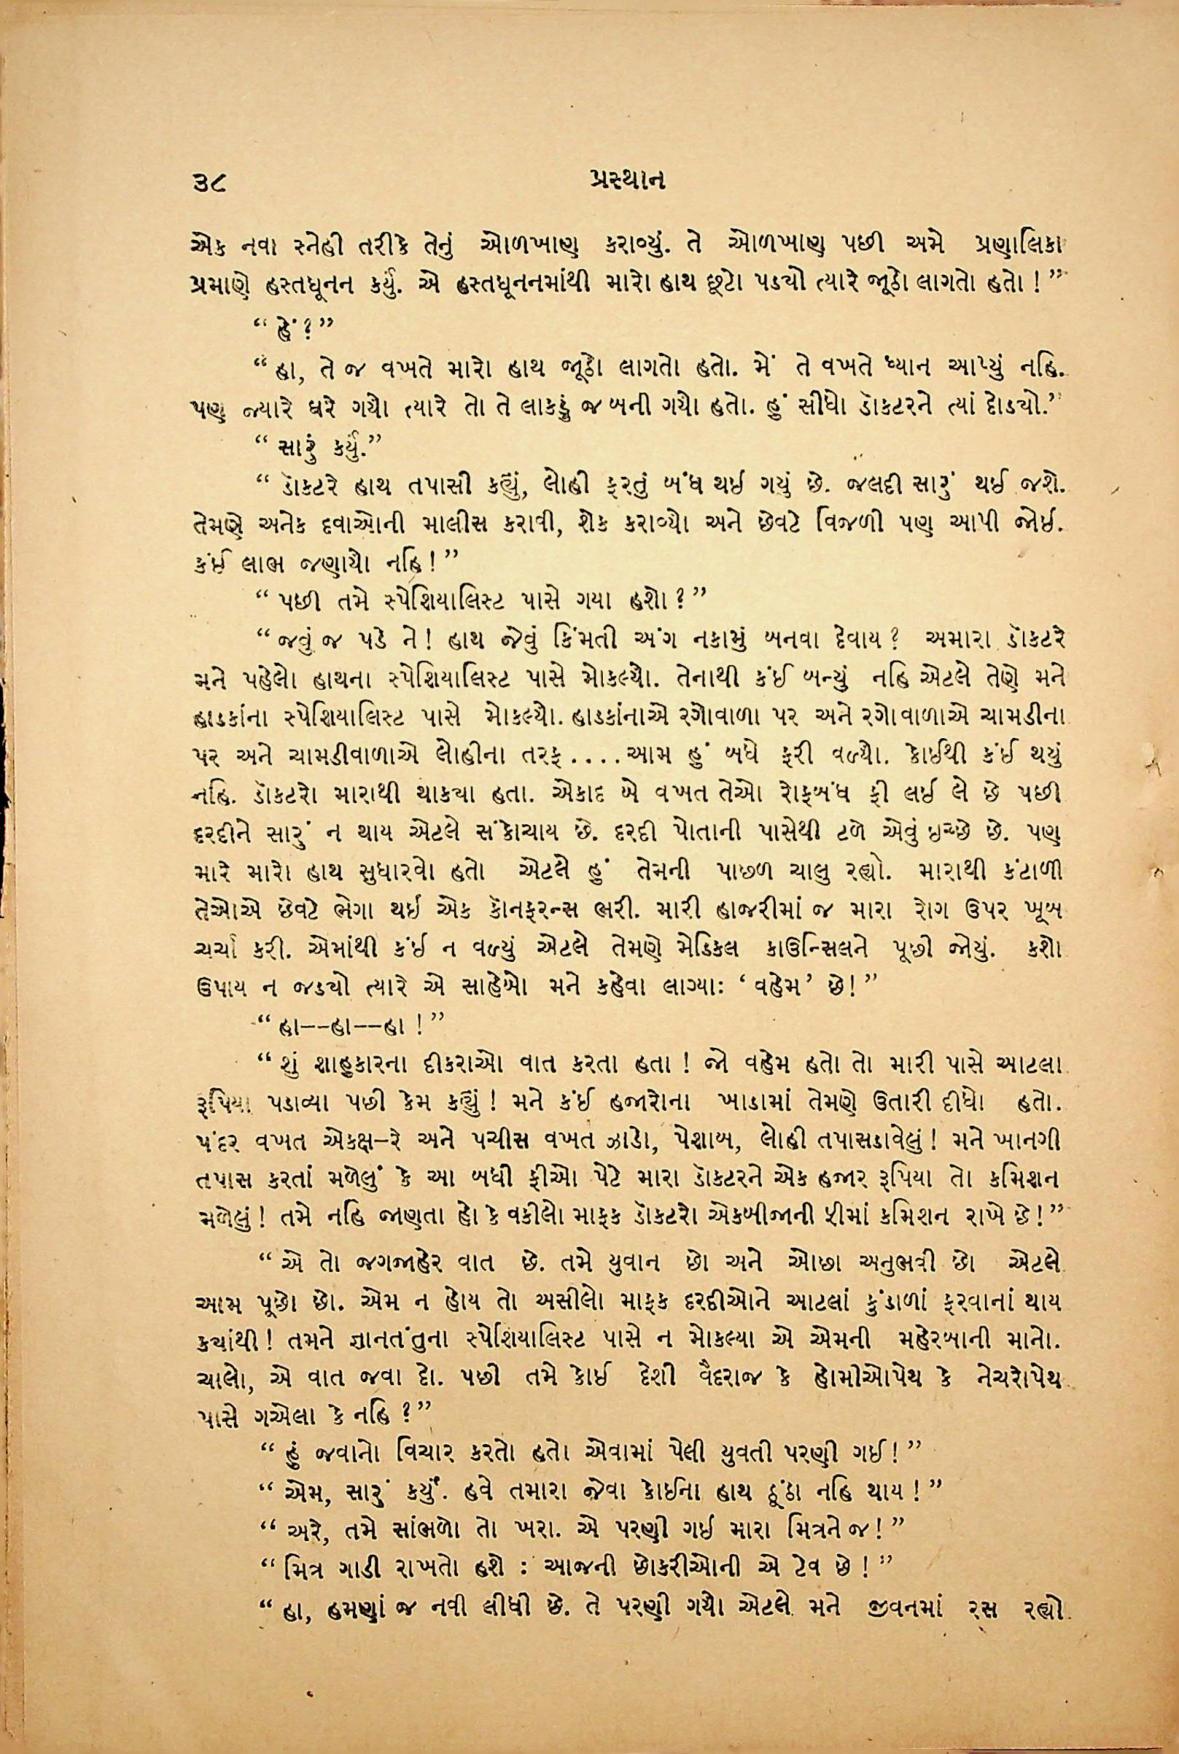 ૩૮ પ્રસ્થાન
એક નવા સ્નેહી તરીકે તેનું ઓળખાણ કરાવ્યું. તે ઓળખાણ પછી અમે પ્રણાલિકા
પ્રમાણે હસ્તધૂનન કર્યું. એ હસ્તધૂનનમાંથી મારો હાથ છૂટો પડ્યો ત્યારે જૂઠો લાગતો હતો ! ”
“ હેં ? ”
“ હા, તે જ વખતે મારો હાથ જૂઠો લાગતો હતો. મેં તે વખતે ધ્યાન આપ્યું નહિ.
પણ જ્યારે ઘરે ગયો ત્યારે તો તે લાકડું જ બની ગયો હતો. હું સીધો ડૉક્ટરને ત્યાં દોડ્યો.”
“ સારું કર્યું.”
“ ડૉક્ટરે હાથ તપાસી કહ્યું, લોહી ફરતું બંધ થઈ ગયું છે. જલદી સારું થઈ જશે.
તેમણે અનેક દવાઓની માલીસ કરાવી, શેક કરાવ્યો અને છેવટે વિજળી પણ આપી જોઈ.
કંઈ લાભ જણાયો નહિ ! ”
“ પછી તમે સ્પેશિયાલિસ્ટ પાસે ગયા હશો ? ”
“ જવું જ પડે ને ! હાથ જેવું કિંમતી અંગ નકામું બનવા દેવાય ? અમારા ડૉક્ટરે
મને પહેલો હાથના સ્પેશિયાલિસ્ટ પાસે મોકલ્યો. તેનાથી કંઈ બન્યું નહિ એટલે તેણે મને
હાડકાંના સ્પેશિયાલિસ્ટ પાસે મોકલ્યો. હાડકાંનાએ રગોવાળા પર અને રગોવાળાએ ચામડીના
પર અને ચામડીવાળાએ લોહીના તરફ .... આમ હું બધે ફરી વળ્યો. કોઈથી કંઈ થયું
નહિ. ડૉક્ટરો મારાથી થાક્યા હતા. એકાદ બે વખત તેઓ રોફબંધ ફી લઈ લે છે પછી
દરદીને સારું ન થાય એટલે સંકોચાય છે. દરદી પોતાની પાસેથી ટળે એવું ઇચ્છે છે. પણ
મારે મારો હાથ સુધારવો હતો એટલે હું તેમની પાછળ ચાલુ રહ્યો. મારાથી કંટાળી
તેઓએ છેવટે ભેગા થઈ એક કૉનફરન્સ ભરી. મારી હાજરીમાં જ મારા રોગ ઉપર ખૂબ
ચર્ચા કરી. એમાંથી કંઈ ન વળ્યું એટલે તેમણે મેડિકલ કાઉન્સિલને પૂછી જોયું. કશો
ઉપાય ન જડ્યો ત્યારે એ સાહેબો મને કહેવા લાગ્યાઃ ‘ વહેમ ’ છે! ”
“ હા––હા––હા ! ”
“ શું શાહુકારના દીકરાઓ વાત કરતા હતા ! જો વહેમ હતો તો મારી પાસે આટલા
રૂપિયા પડાવ્યા પછી કેમ કહ્યું ! મને કંઈ હજારોના ખાડામાં તેમણે ઉતારી દીધો હતો.
પંદર વખત એક્ષ–રે અને પચીસ વખત ઝાડો, પેશાબ, લોહી તપાસડાવેલું ! મને ખાનગી
તપાસ કરતાં મળેલું કે આ બધી ફીઓ પેટે મારા ડૉક્ટરને એક હજાર રૂપિયા તો કમિશન
મળેલું ! તમે નહિ જાણતા હો કે વકીલો માફક ડૉક્ટરો એકબીજાની ફીમાં કમિશન રાખે છે ! ”
“ એ તો જગજાહેર વાત છે. તમે યુવાન છો અને ઓછા અનુભવી છો એટલે
આમ પૂછો છો. એમ ન હોય તો અસીલો માફક દરદીઓને આટલાં કુંડાળાં ફરવાનાં થાય
ક્યાંથી ! તમને જ્ઞાનતંતુના સ્પેશિયાલિસ્ટ પાસે ન મોકલ્યા એ એમની મહેરબાની માનો.
ચાલો, એ વાત જવા દો. પછી તમે કોઈ દેશી વૈદરાજ કે હોમીઓપેથ કે નેચરોપેથ
પાસે ગએલા કે નહિ ? ”
“ હું જવાનો વિચાર કરતો હતો એવામાં પેલી યુવતી પરણી ગઈ ! ”
“ એમ, સારું કર્યું. હવે તમારા જેવા કોઈના હાથ ઠૂંઠા નહિ થાય ! ”
“ અરે, તમે સાંભળો તો ખરા. એ પરણી ગઈ મારા મિત્રને જ ! ”
“ મિત્ર ગાડી રાખતો હશે : આજની છોકરીઓની એ ટેવ છે ! ”
“ હા, હમણાં જ નવી લીધી છે. તે પરણી ગયો એટલે મને જીવનમાં રસ રહ્યો